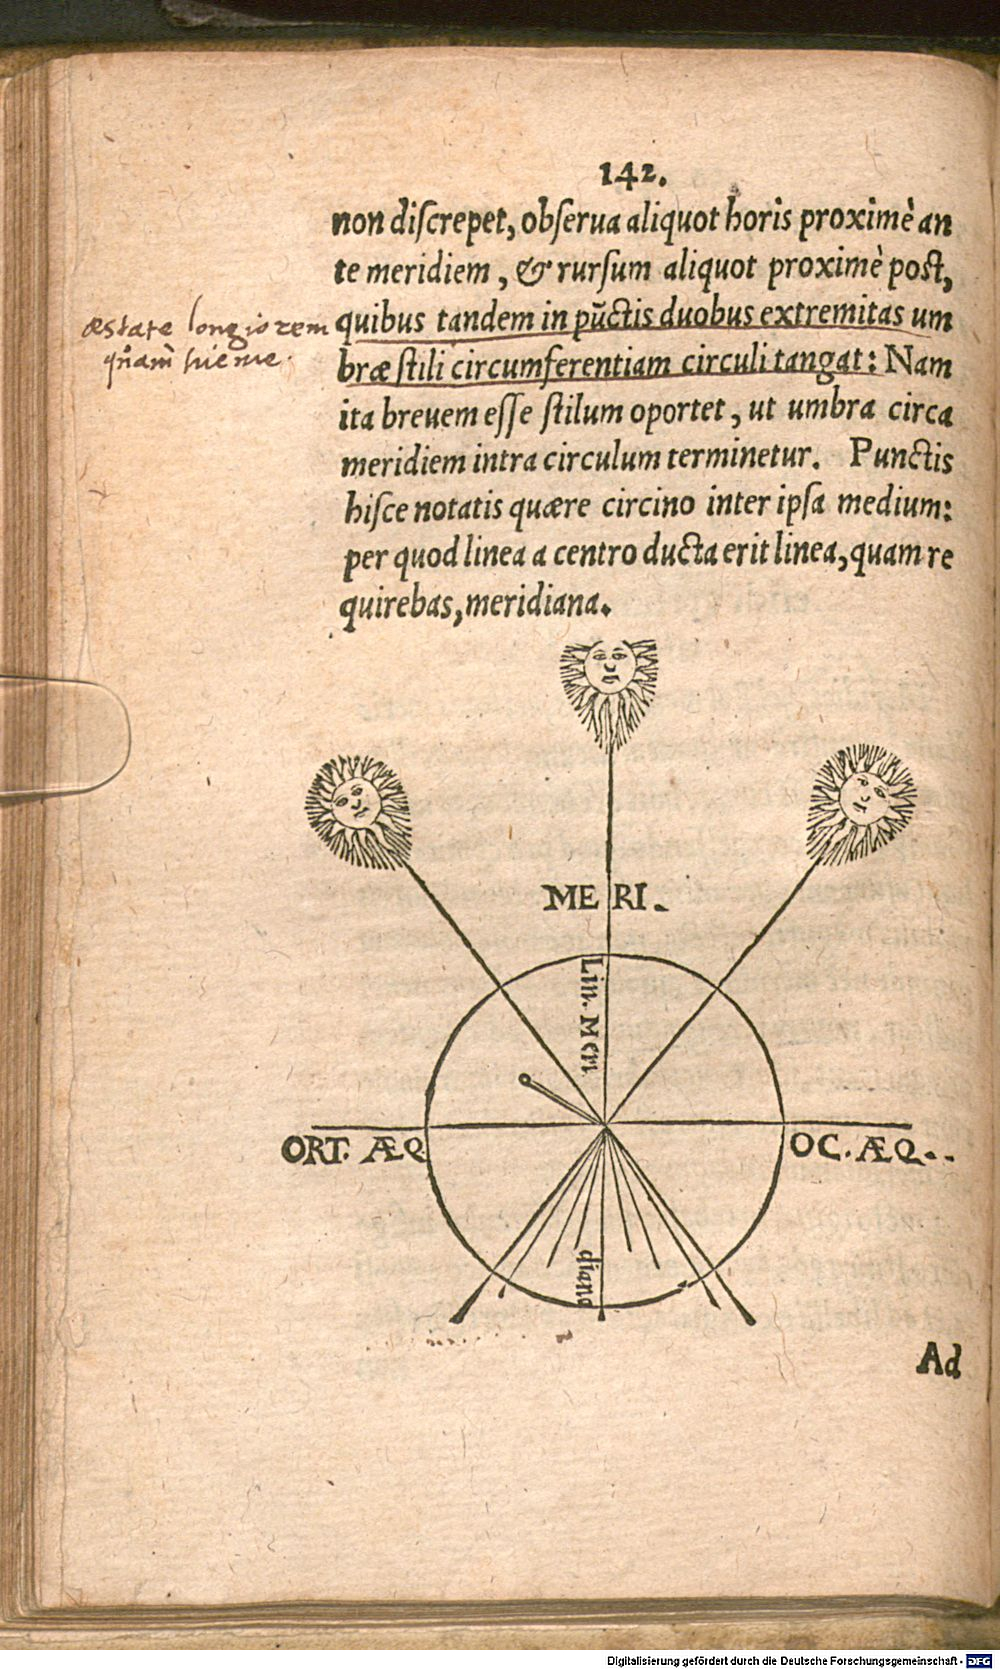 142.
non diſcrepet, obſerua aliquot horis proximè an
te meridiem, & rurſum aliquot proximè poſt,
quibus tandem in pūctis duobus extremitas um
bræ ſtili circumferentiam circuli tangat: Nam
ita breuem eſſe ſtilum oportet, ut umbra circa
meridiem intra circulum terminetur. Punctis
hiſce notatis quære circino inter ipſa medium:
per quod linea a centro ducta erit linea, quam re
quirebas, meridiana.
æstate longiorem
quam hieme.
MERI.
Lin. Meri
ORT. ÆQ
OC. ÆQ..
diana
Ad
Digitalisierung gefördert durch die Deutsche Forschungsgemeinschaft - DFG